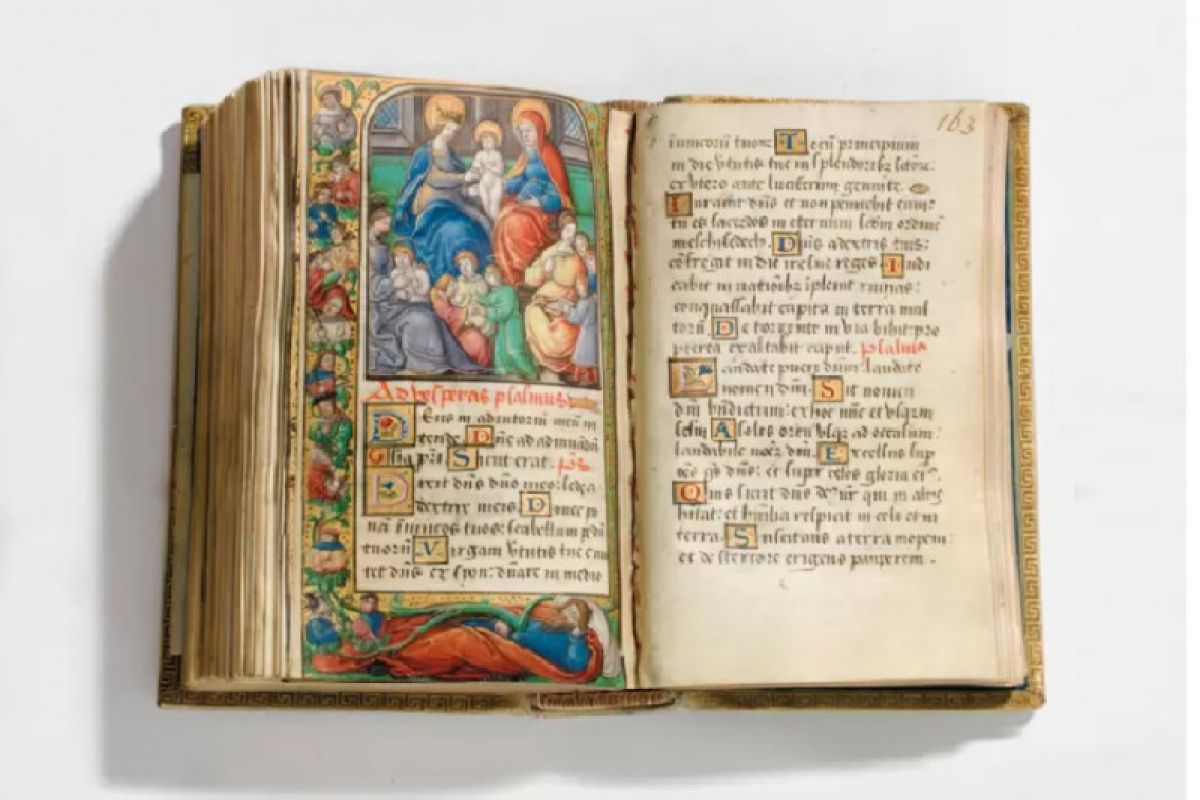 Ad vesperas psalmus
Deus in adiutoriũ meũ in
tende. Dñe ad adiuvãdũ
Gloria pr̃i Sicut erat. ps̃
Dixit dñs dño meo: sede a
dextris meis. Donec po
nã inimicos tuos: scabellum pedũ
tuorũ Virgam v̓tutis tue emi
tet dñs ex syon: dñare in medio
163
inimicorũ tuorũ Tecũ principium
in die v̓tutis tue in splendoribꝫ sctõꝝ
ex utero ante luciferum genui te.
Iuravit dñs et non penitebit eum:
tu es sacerdos in eternum scdm̃ ordinẽ
melchisedech. Dñs a dextris tuis:
cõfregit in die ire sue reges. Iudi
cabit in nationibꝫ ĩplebit ruinas:
conquassabit capita in terra mul
torũ. De torrente in via bibit: pro
pterea exaltabit caput. psalmus
Laudate pueri dñm: laudate
nomen dñi. Sit nomen
dñi bñdictum: ex hoc nũc et usqꝫ in
sclm̃ A solis ortu usqꝫ ad occasum:
laudabile nomẽ dñi. Excelsus sup̃
oẽs gẽtes dñs: et super celos gloria eiꝰ
Quis sicut dñs deꝰ nr̃ qui in altis
habitat: et humilia respicit in celo et in
terra. Suscitans a terra inopem:
et de stercore erigens pauperem.